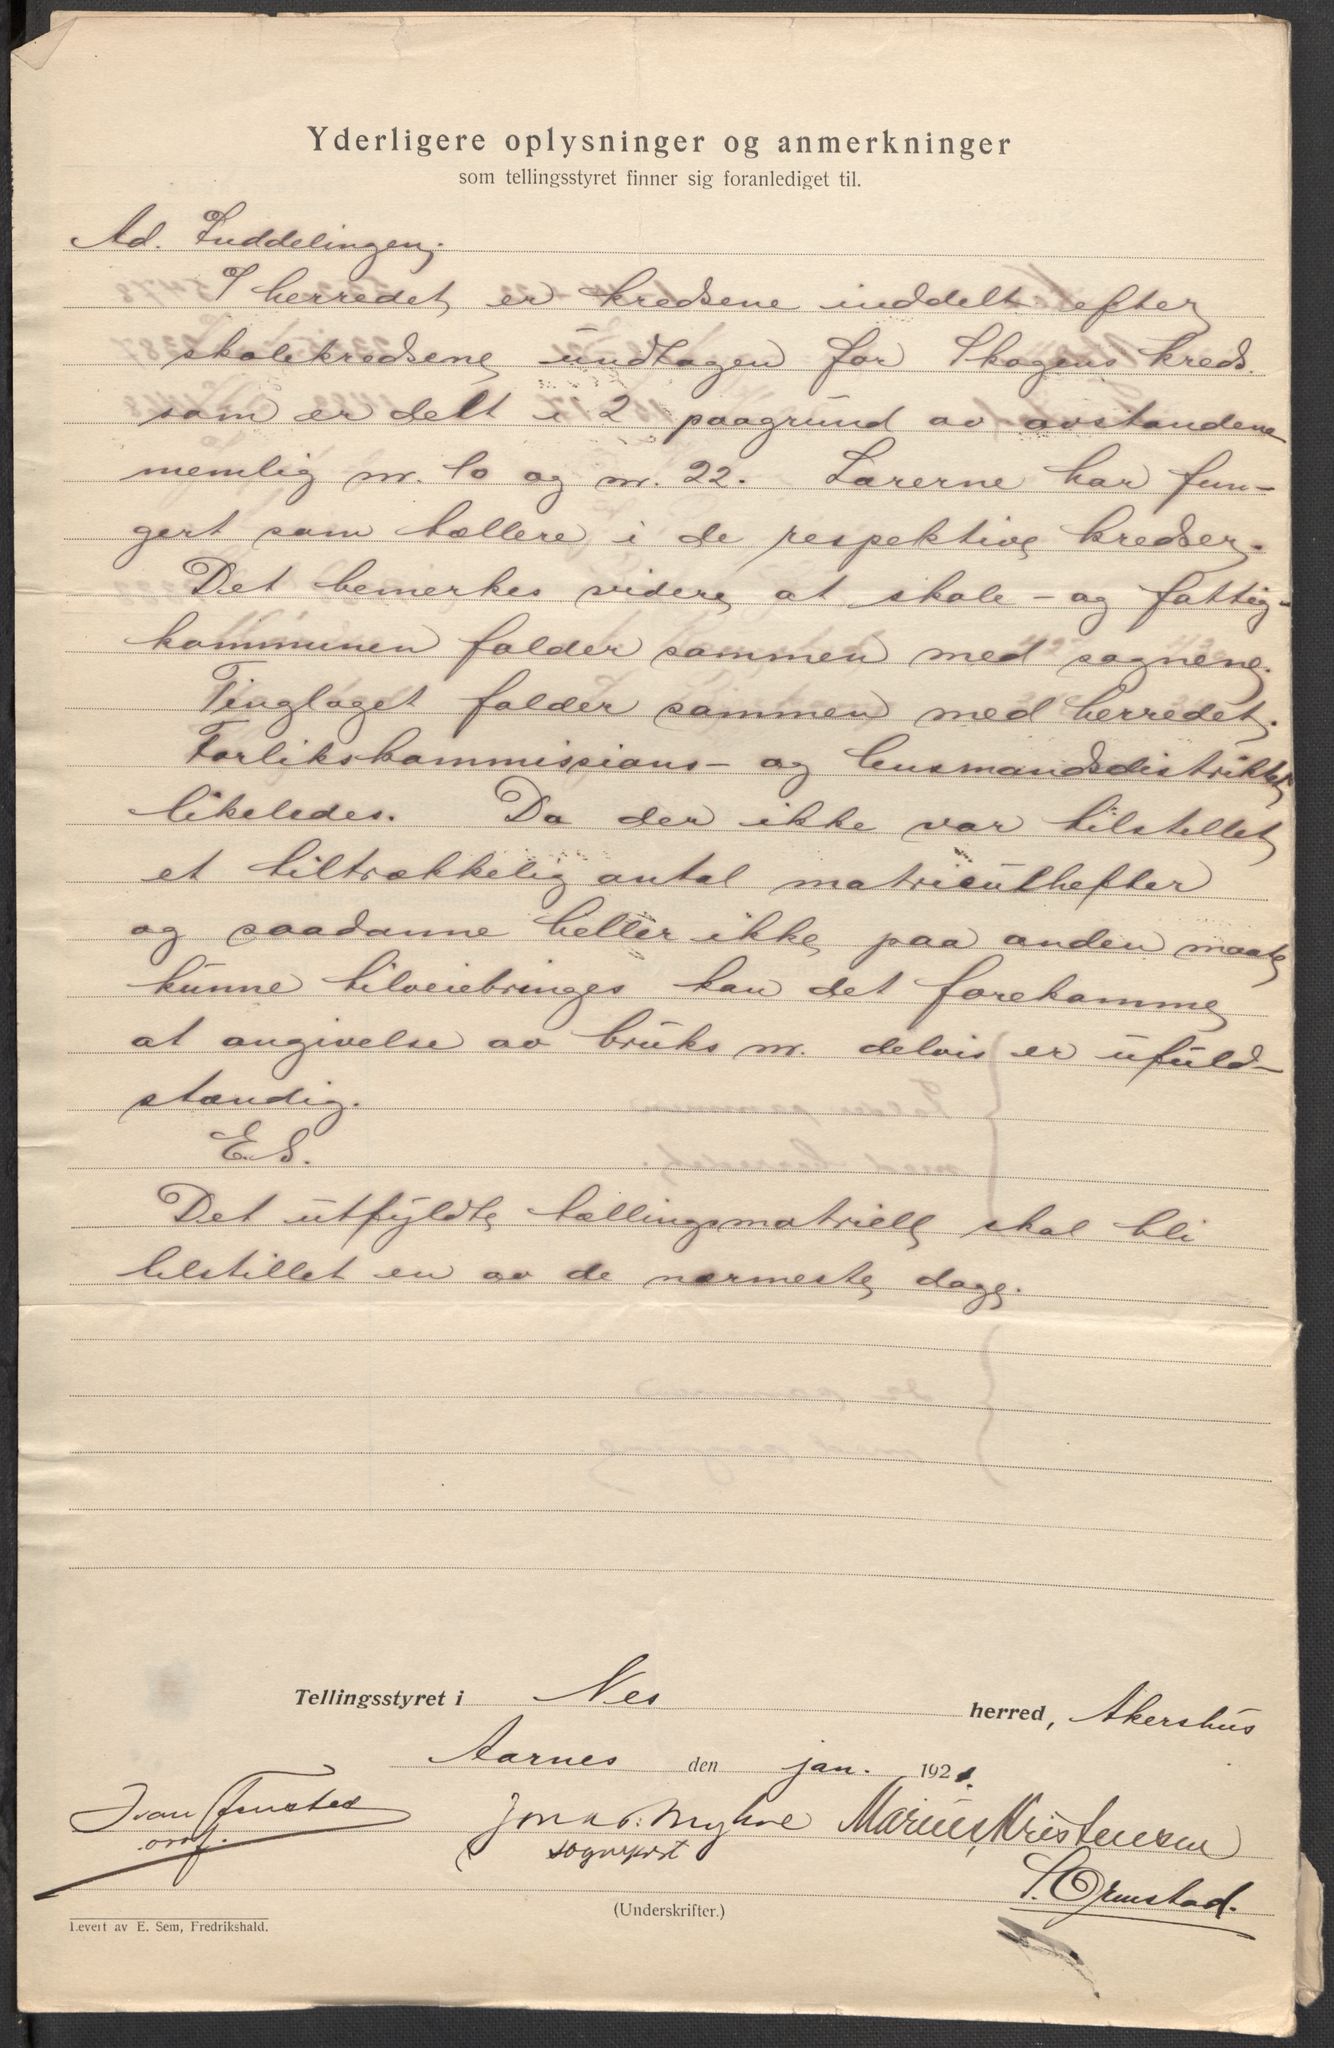 Yderligere oplysninger og anmerkninger
som tellingsstyret finner sig foranlediget til.
Ad. Inddelingen.
I herredet er kredsene inddelt efter
skolekredsene undtagen for Skogens kreds
som er delt i 2 paagrund av avstandene
nemlig nr. 10 og nr. 22. Lærerne har fun-
gert som tællere i de respektive kredser.
Det bemerkes videre at skole- og fattig-
kommunen falder sammen med sognene.
Tinglaget falder sammen med herredet.
Forlikskommissions- og lensmandsdistriktet
likeledes. Da der ikke var tilstillet
et tiltrækkelig antal matriculhefter
og saadanne heller ikke paa anden maate
kunne tilveiebringes kan det forekomme
at angivelse av bruks nr. delvis er ufuld-
stændig.
E.S.
Det utfyldte tællingsmatriell skal bli
tilstillet en av de nærmeste dage.
Tellingsstyret i Nes herred, Akershus
Aarnes den jan. 1921.
Ivar
ordf.
Jon Myhre Marius Kristensen
sogneprst
S. Ormstad.
(Underskrifter.)
Levert av E. Sem, Fredrikshald.